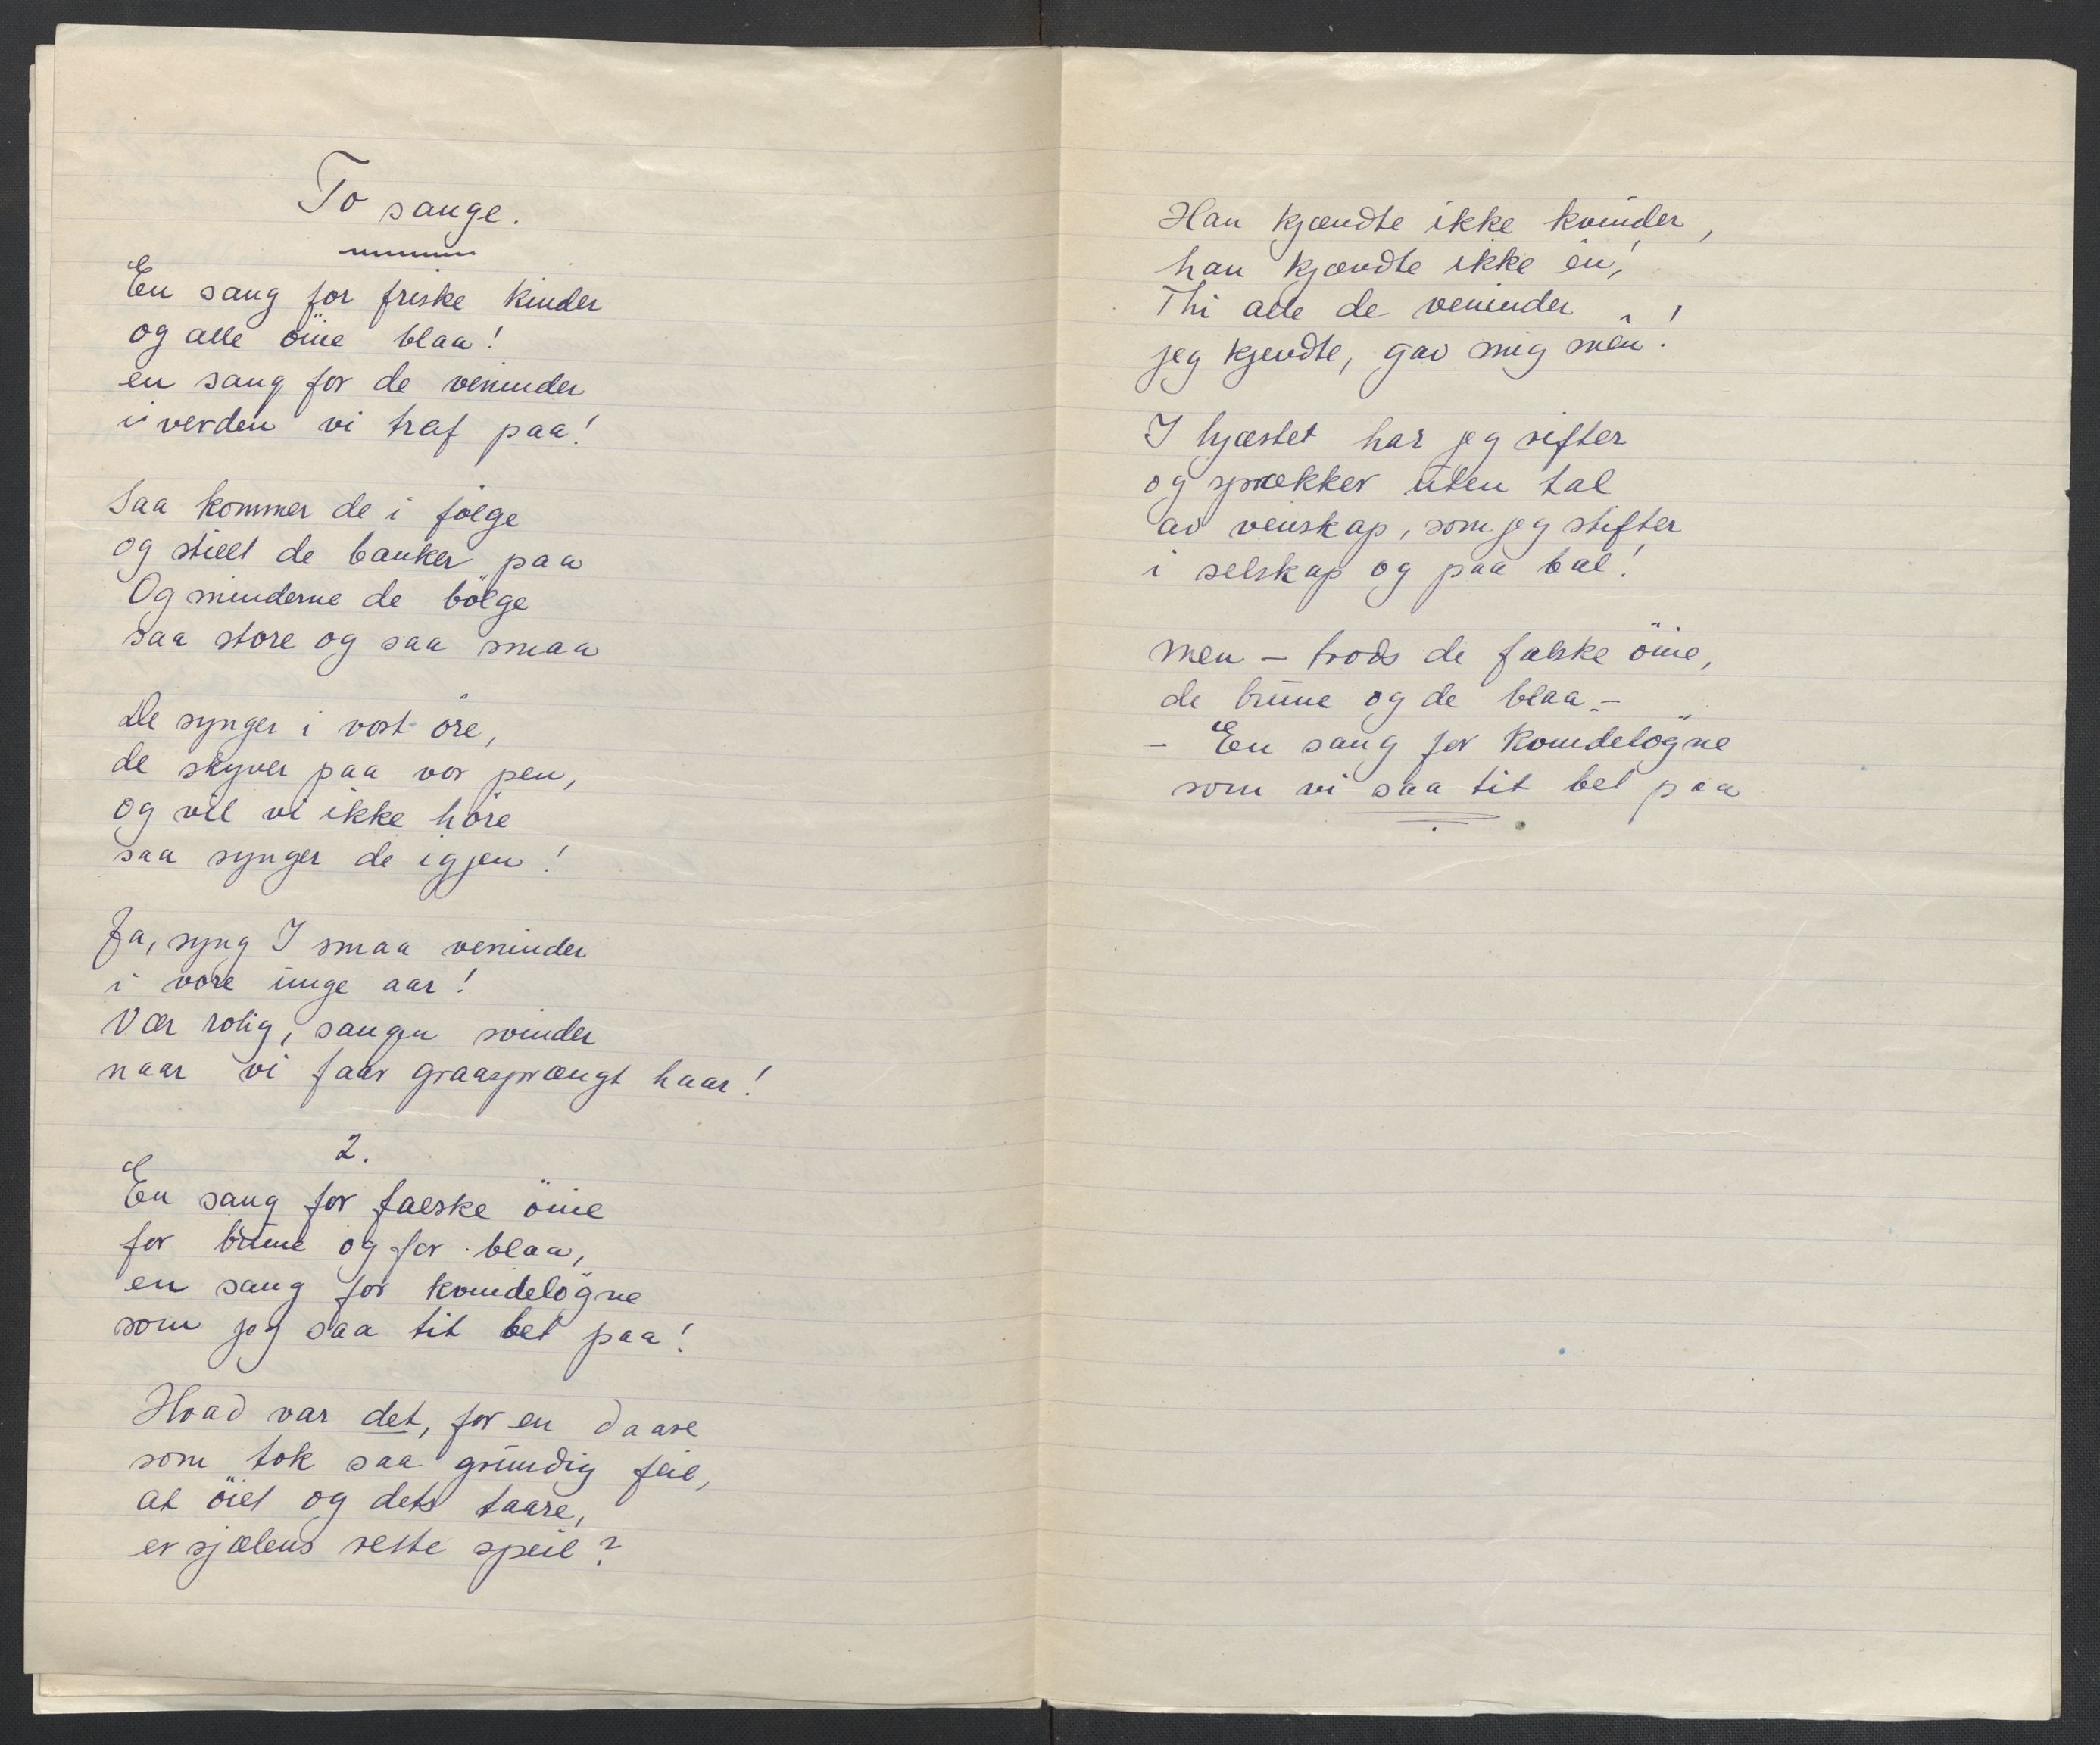 To sange.
En sang for friske kinder
og alle öine blaa!
en sang for de veninder
i verden vi traf paa!
Saa kommer de i følge
og stillt de banker paa
Og minderne de bölge
saa store og saa smaa
De synger i vort öre,
de skyver paa vor pen,
og vil vi ikke höre
saa synger de igjen!
Ja, syng I smaa veninder
i vore unge aar!
Vær rolig, sangen svinder
naar vi faar graasprængt haar!
2.
En sang for falske öine
for brune og for blaa,
en sang for kvindelögne
som jeg saa tit bet paa!
Hvad var det, for en daare
som tok saa grundig feil,
at öiet og dets taare,
er sjælens rette speil?
Han kjændte ikke kvinder,
han kjændte ikke ên!
Thi alle de veninder
jeg kjendte, gav mig mên!
I hjærtet har jeg rifter
og sprækker uten tal
av venskap, som jeg stifter
i selskap og paa bal!
Men – trods de falske öine,
de brune og de blaa –
– En sang for kvindelögne
som vi saa tit bet paa